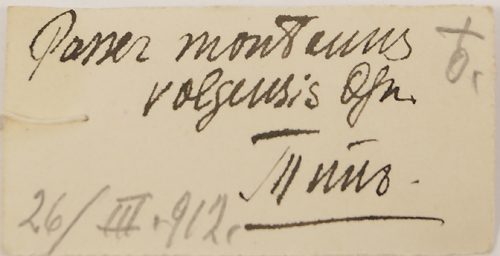 Passer montanus
volgensis Ogn.
Типъ.
26/III.912.